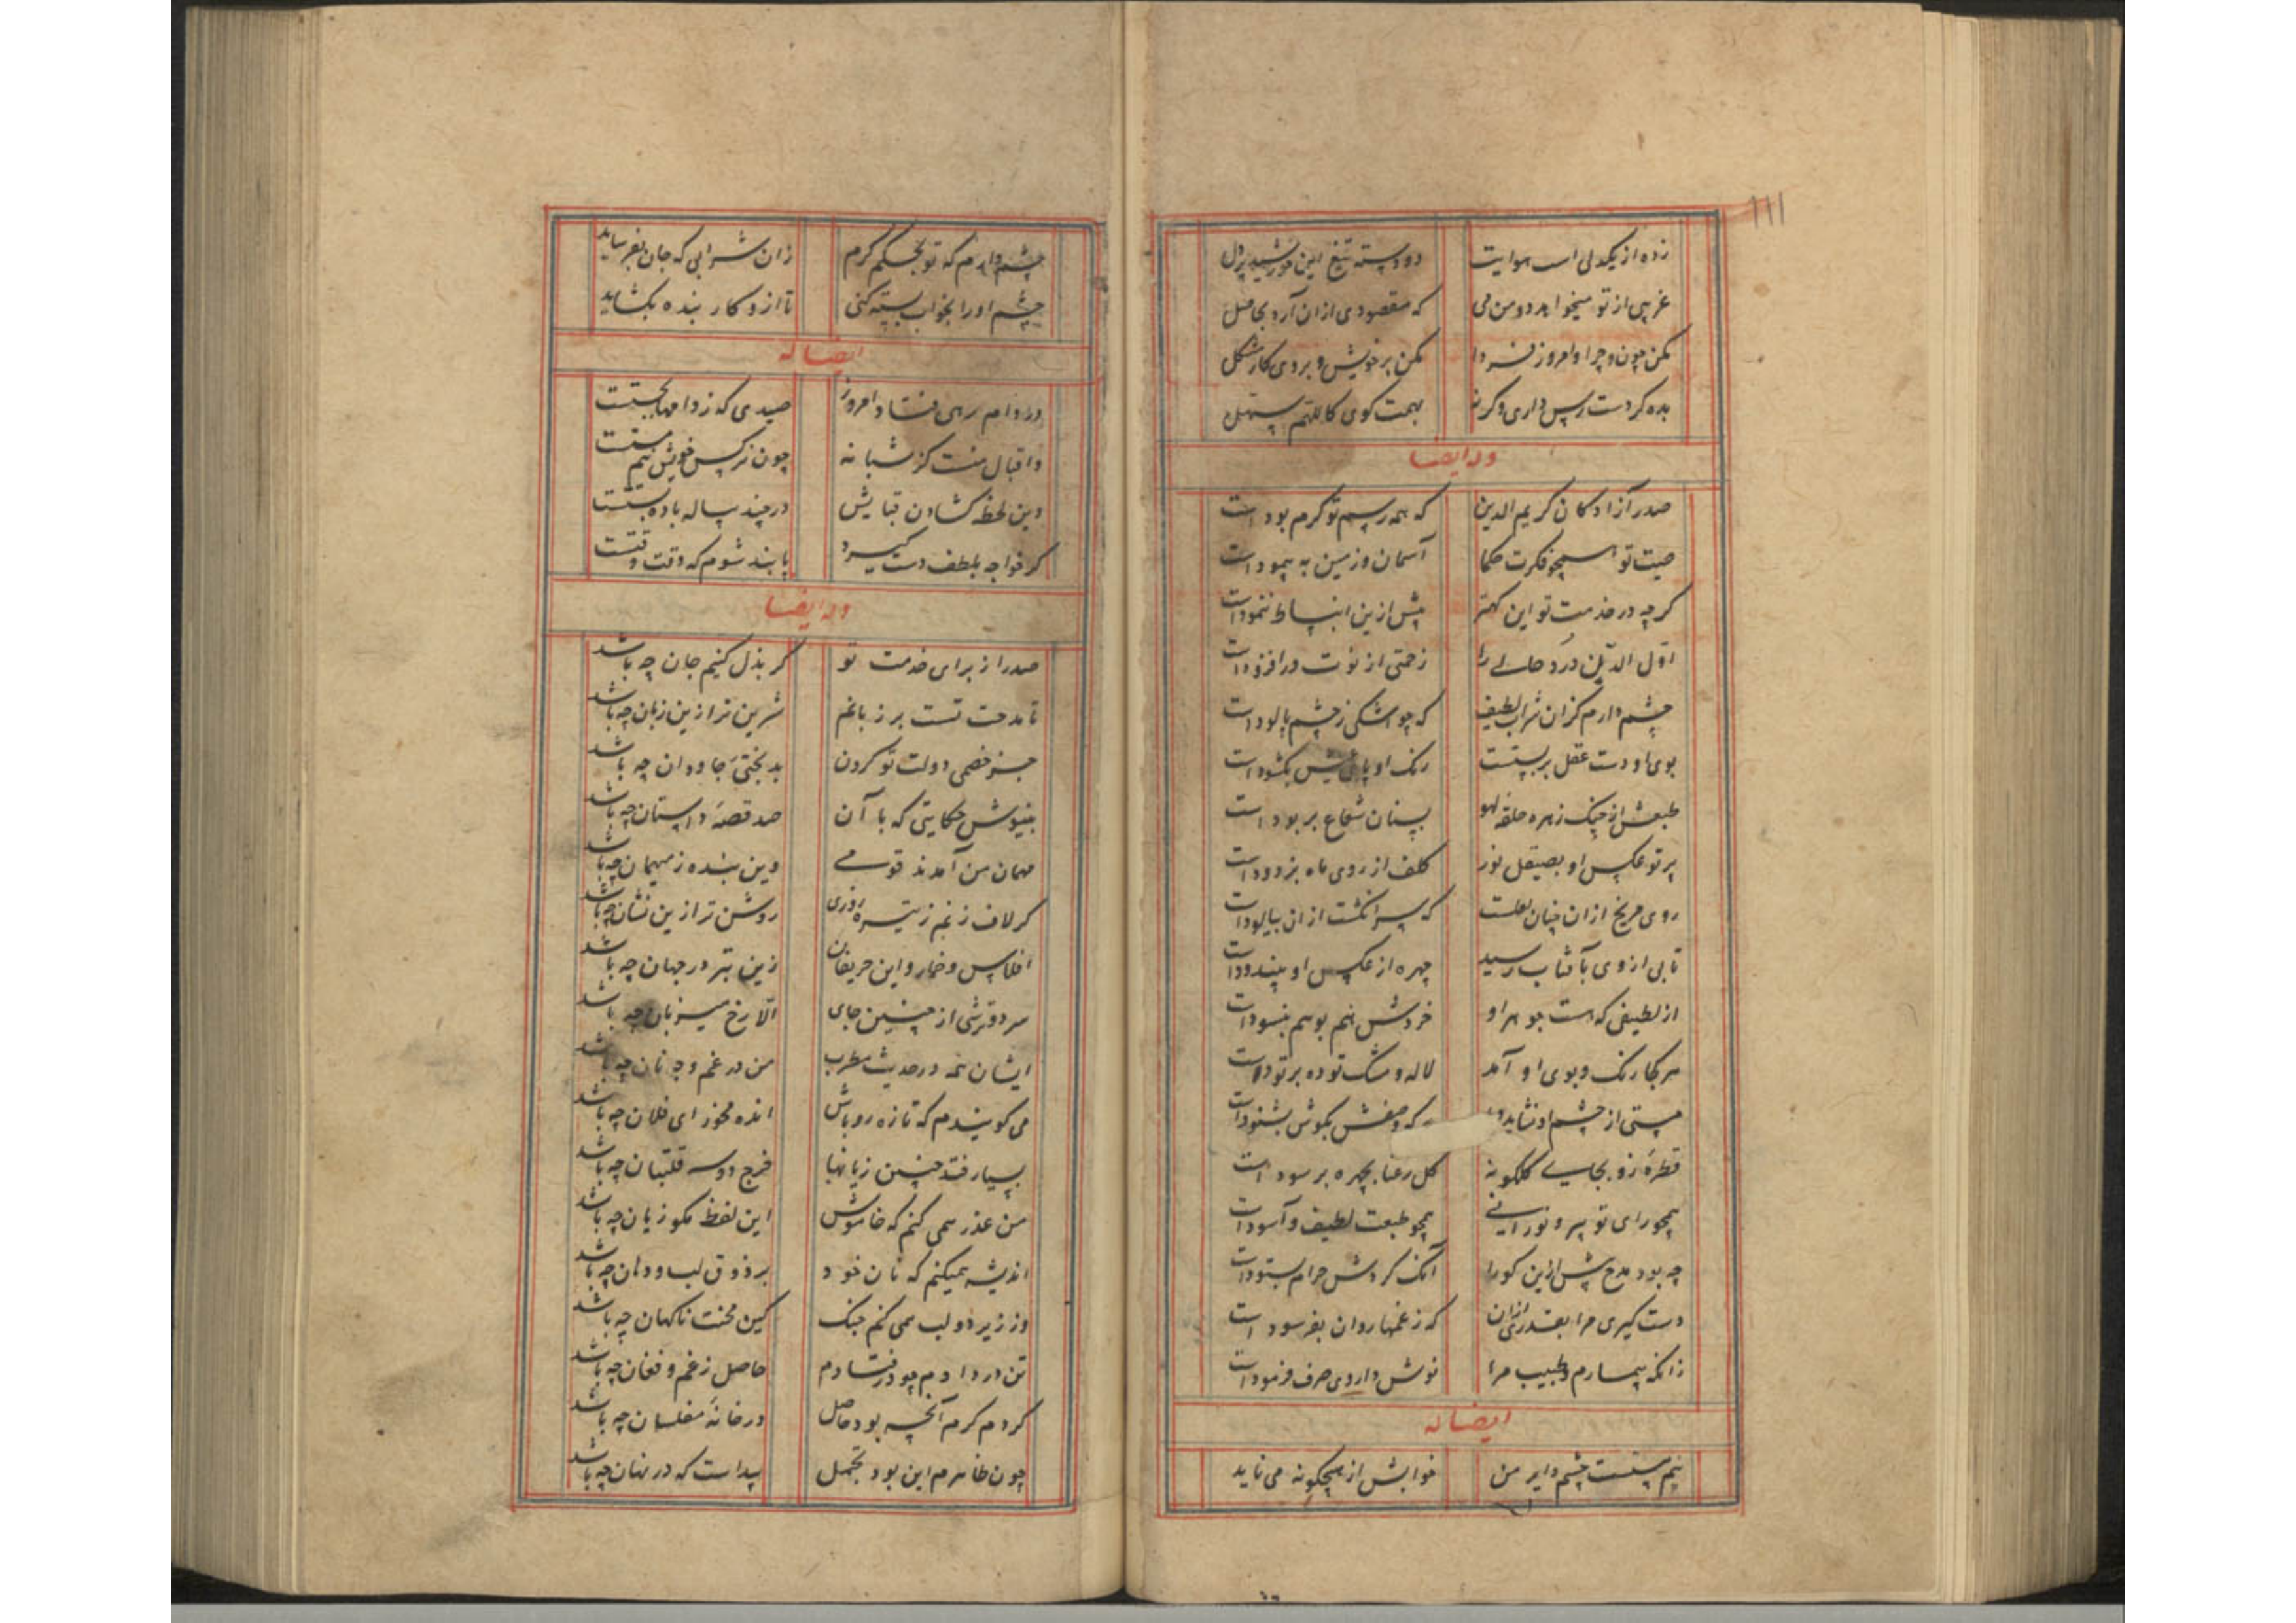 ۱۱۱
زده از یکدلی است هوایت دو دسته تیغ این خورشید پردل
غریبی از تو میخواهد دو من می که مقصودی ازان آرد بحاصل
مکن چون و چرا و امروز فردا مکن بر خویش و بر وی کار مشکل
بده کر دست رس داری وکرنه بهمت کوی کاللهم سهل
وله ایضا
صدر آزادکان کریم الدین که همه رسم تو کرم بودست
صیت تو همچو فکرت حکما آسمان و زمین به پیمودست
کرچه در خدمت تو این کهتر پیش ازین انبساط ننمودست
اول الدن درد حالی را زحمتی از نوت در افزودست
چشم دارم کزان شراب لطیف که چو اشکی ز چشم پالودست
بوی او دست عقل بر بستست رنک او پای عیش بکشودست
طبعش از چنک زهره حلقه لهو بسنان شعاع بربودست
پرتو عکس او بصیقل نور کلف از روی ماه بزدودست
روی مریخ ازان چنان لعلست که سرانکشت ازان بیالودست
تابی از وی بآفتاب رسید چهره از عکس او بیندودست
از لطیفی که هست جوهر او خردش هم بوهم نبسودست
هر کجا رنک و بوی او آمد لاله و مشک توده بر تودست
مستی از چشم او نشاید که وصفش بکوش بشنودست
قطره زو بجای کلکونه کل رعنا بچهره بر سودست
همچو رای تو پیر و نورانی همچو طبعت لطیف و آسودست
چه بود مدح بیش ازین کورا آنک کردش حرام بستودست
دست کیری مرا بقدری ازان که ز غمها روان بفرسودست
زانکه بیمارم و طبیب مرا نوش داروی صرف فرمودست
ایضا له
نیم مستست چشم دلبر من خوابش از هیچکونه می ناید
چشم دارم که تو بحکم کرم زان شرابی که جان بفزاید
چشم او را بخواب بسته کنی تا ازو کار بنده بکشاید
ایضا له
در دام رهی فتاد امروز صیدی که ز دامها بجستست
و اقبال منست کز شبانه چون نرکس خویش نیم مستست
وین لحظه کشادن قبایش در چند پیاله باده بستست
کر خواجه بلطف دست کیرد پابند شوم که وقت وقتست
وله ایضا
صدرا ز برای خدمت تو کر بذل کنیم جان چه باشد
تا مدحت تست بر زبانم شیرین تر ازین زبان چه باشد
جز خصمی دولت تو کردن بدبختی جاودان چه باشد
بنیوش حکایتی که با آن صد قصه و داستان چه باشد
مهمان من آمدند قومی وین بنده ز میهمان چه باشد
کر لاف زنم ز تیره روزی روشن تر ازین نشان چه باشد
افلاس و خمار و این حریفان زین بتر در جهان چه باشد
سرد و ترشی از چنین جای الا رخ میزبان چه باشد
ایشان همه در حدیث مطرب من در غم وجه نان چه باشد
می کویندم که تازه رو باش انده مخور ای فلان چه باشد
بسیار فتد چنین زیانها خرج دو سه قلتبان چه باشد
من عذر همی کنم که خاموش این لفظ مکو زیان چه باشد
اندیشه همیکنم که نان خود بر ذوق لب و دهان چه باشد
وز زیر دو لب همی کنم جنک کین محنت ناکهان چه باشد
تن در دادم چو در فتادم حاصل ز غم و فغان چه باشد
کردم کرم آنچه بود حاصل در خانه مفلسان چه باشد
چون ظاهرم این بود تجمل پیداست که در نهان چه باشد